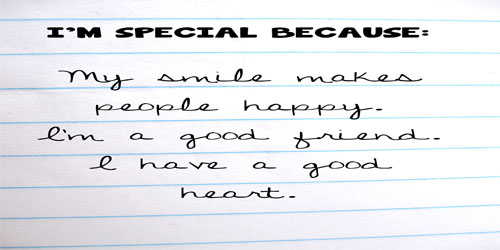 I'M SPECIAL BECAUSE:
My smile makes
people happy.
I'm a good friend.
I have a good
heart.